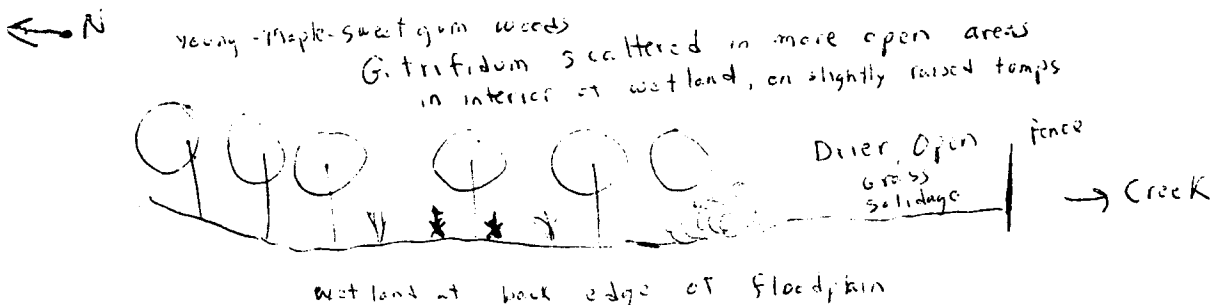 N
young-maple-sweetgum woods
G. trifidum scattered in more open areas
in interior of wetland, on slightly raised tumps
Drier, Open
Grass
Solidago
Fence
→ Creek
wetland at back edge of floodplain